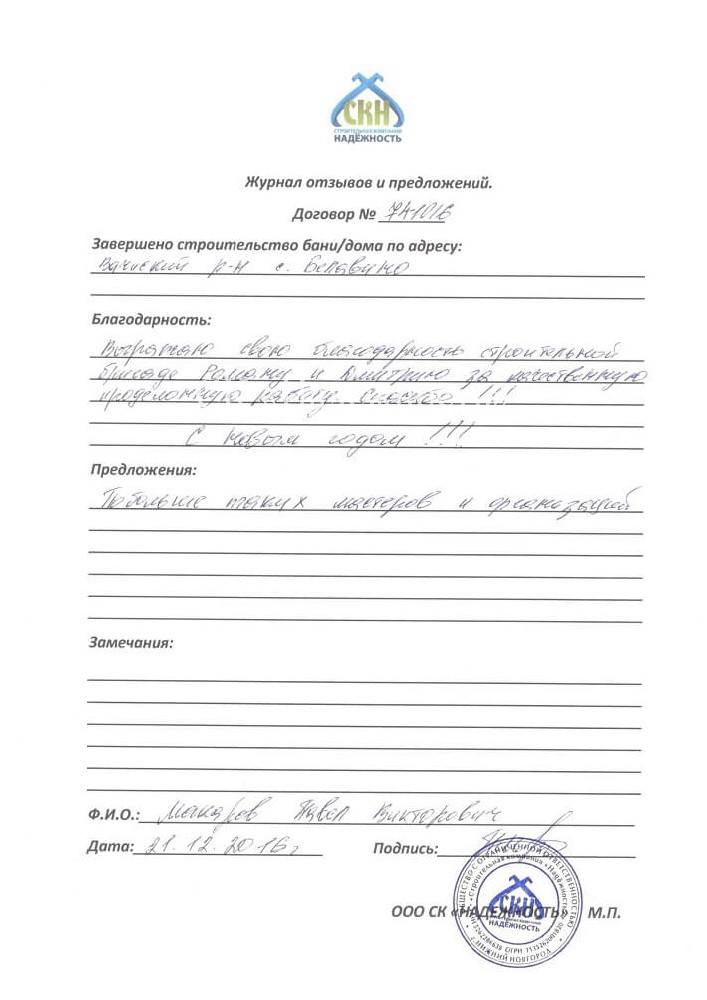 СКН
СТРОИТЕЛЬНАЯ КОМПАНИЯ
НАДЁЖНОСТЬ
Журнал отзывов и предложений.
Договор № 741016
Завершено строительство бани/дома по адресу:
Вачский р-н с. Белавино
Благодарность:
Выражаю свою благодарность строительной
бригаде Роману и Дмитрию за качественную
проделанную работу. Спасибо !!!
С Новым годом !!!
Предложения:
Побольше таких мастеров и организаций
Замечания:
Ф.И.О.: Макаров Павел Викторович
Дата: 21.12.2016 г
Подпись:
ООО СК «НАДЁЖНОСТЬ» М.П.
ОБЩЕСТВО С ОГРАНИЧЕННОЙ ОТВЕТСТВЕННОСТЬЮ
«Строительная компания «Надёжность»
СКН
НАДЁЖНОСТЬ
г. НИЖНИЙ НОВГОРОД